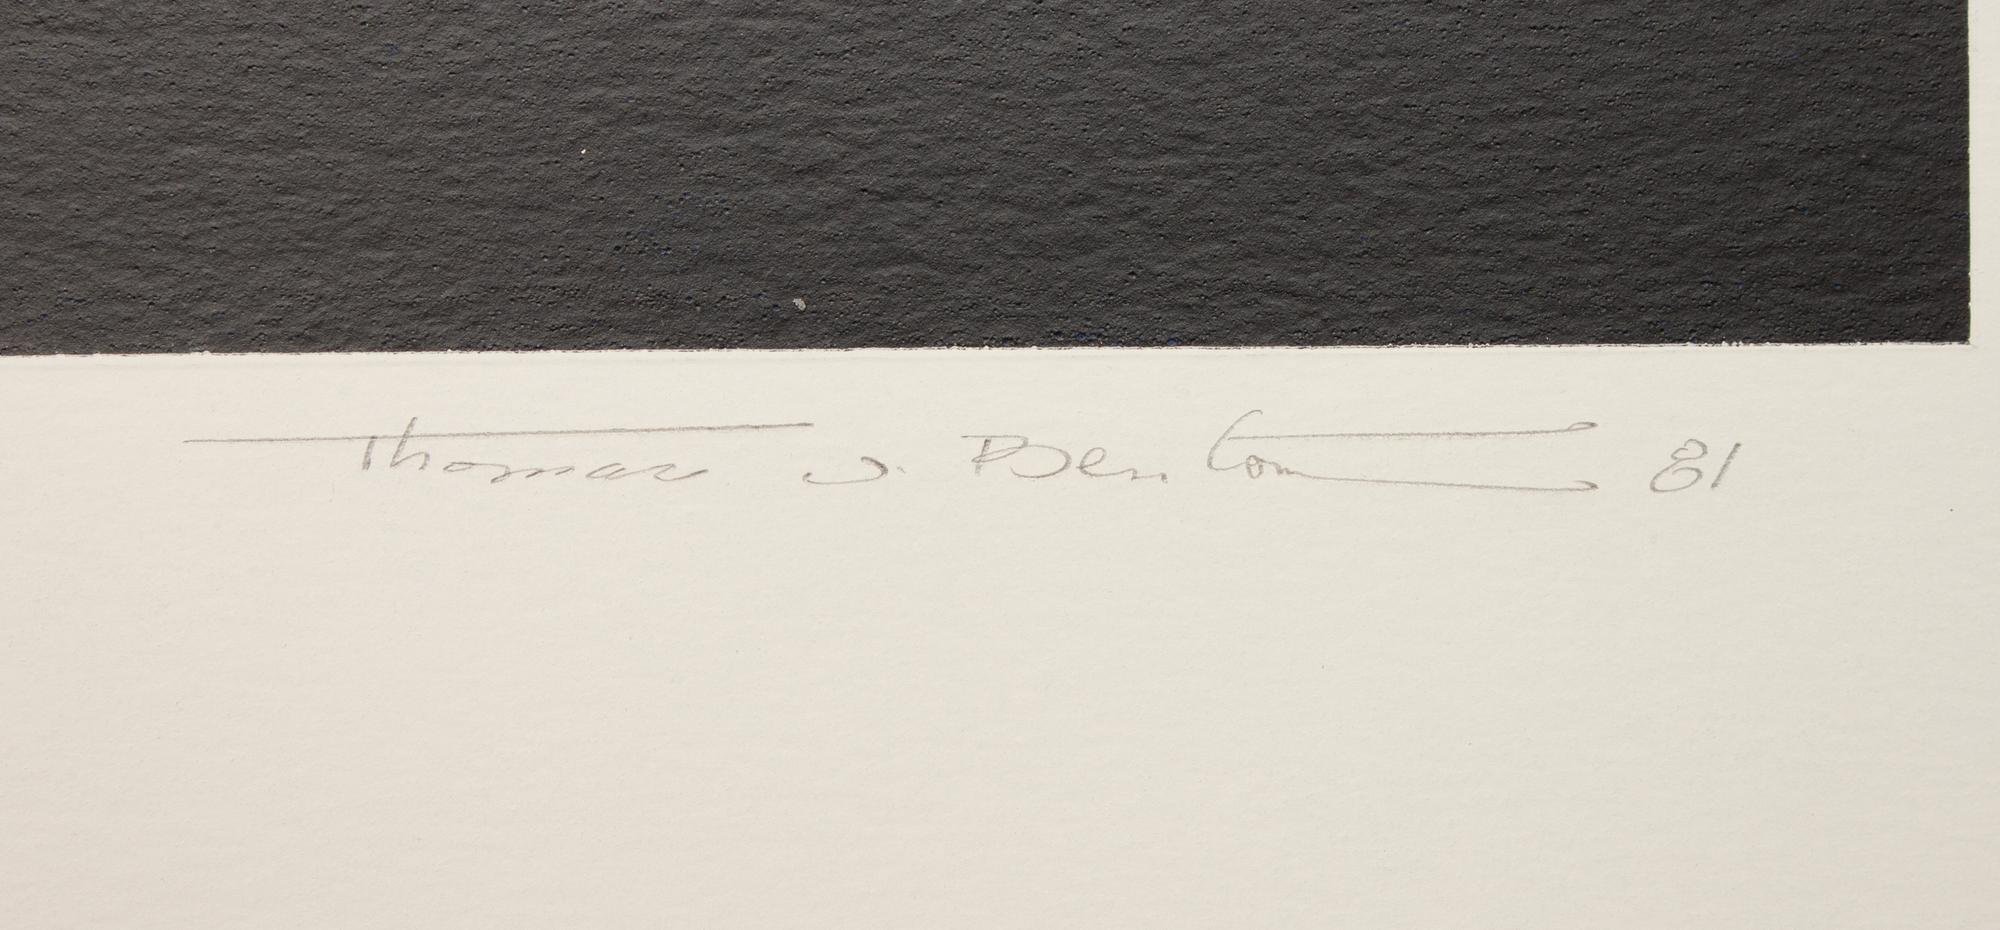 Thomas W. Benton 81